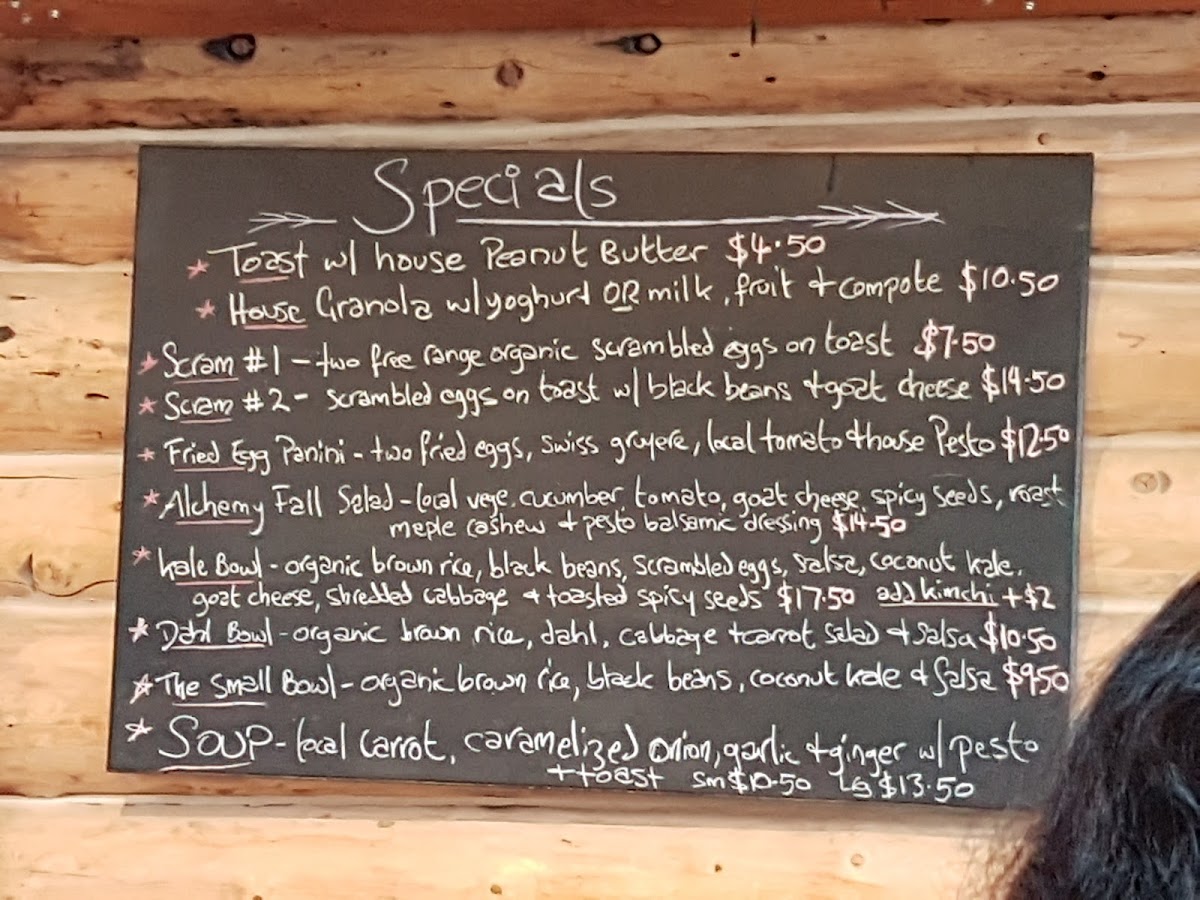 Specials
* Toast w/ house Peanut Butter $4.50
* House Granola w/yoghurt OR milk, fruit + compote $10.50
* Scram #1 - two free range organic scrambled eggs on toast $7.50
* Scram #2 - scrambled eggs on toast w/ black beans + goat cheese $14.50
* Fried Egg Panini - two fried eggs, swiss gruyere, local tomato + house Pesto $12.50
* Alchemy Fall Salad - local vege, cucumber, tomato, goat cheese, spicy seeds, roast
maple cashew + pesto balsamic dressing $14.50
* Kale Bowl - organic brown rice, black beans, scrambled eggs, salsa, coconut kale,
goat cheese, shredded cabbage + toasted spicy seeds $17.50 add kimchi +$2
* Dahl Bowl - organic brown rice, dahl, cabbage + carrot salad + salsa $10.50
* The Small Bowl - organic brown rice, black beans, coconut kale + salsa $9.50
* Soup - local carrot, caramelized onion, garlic + ginger w/ pesto
+ toast sm $10.50 Lg $13.50